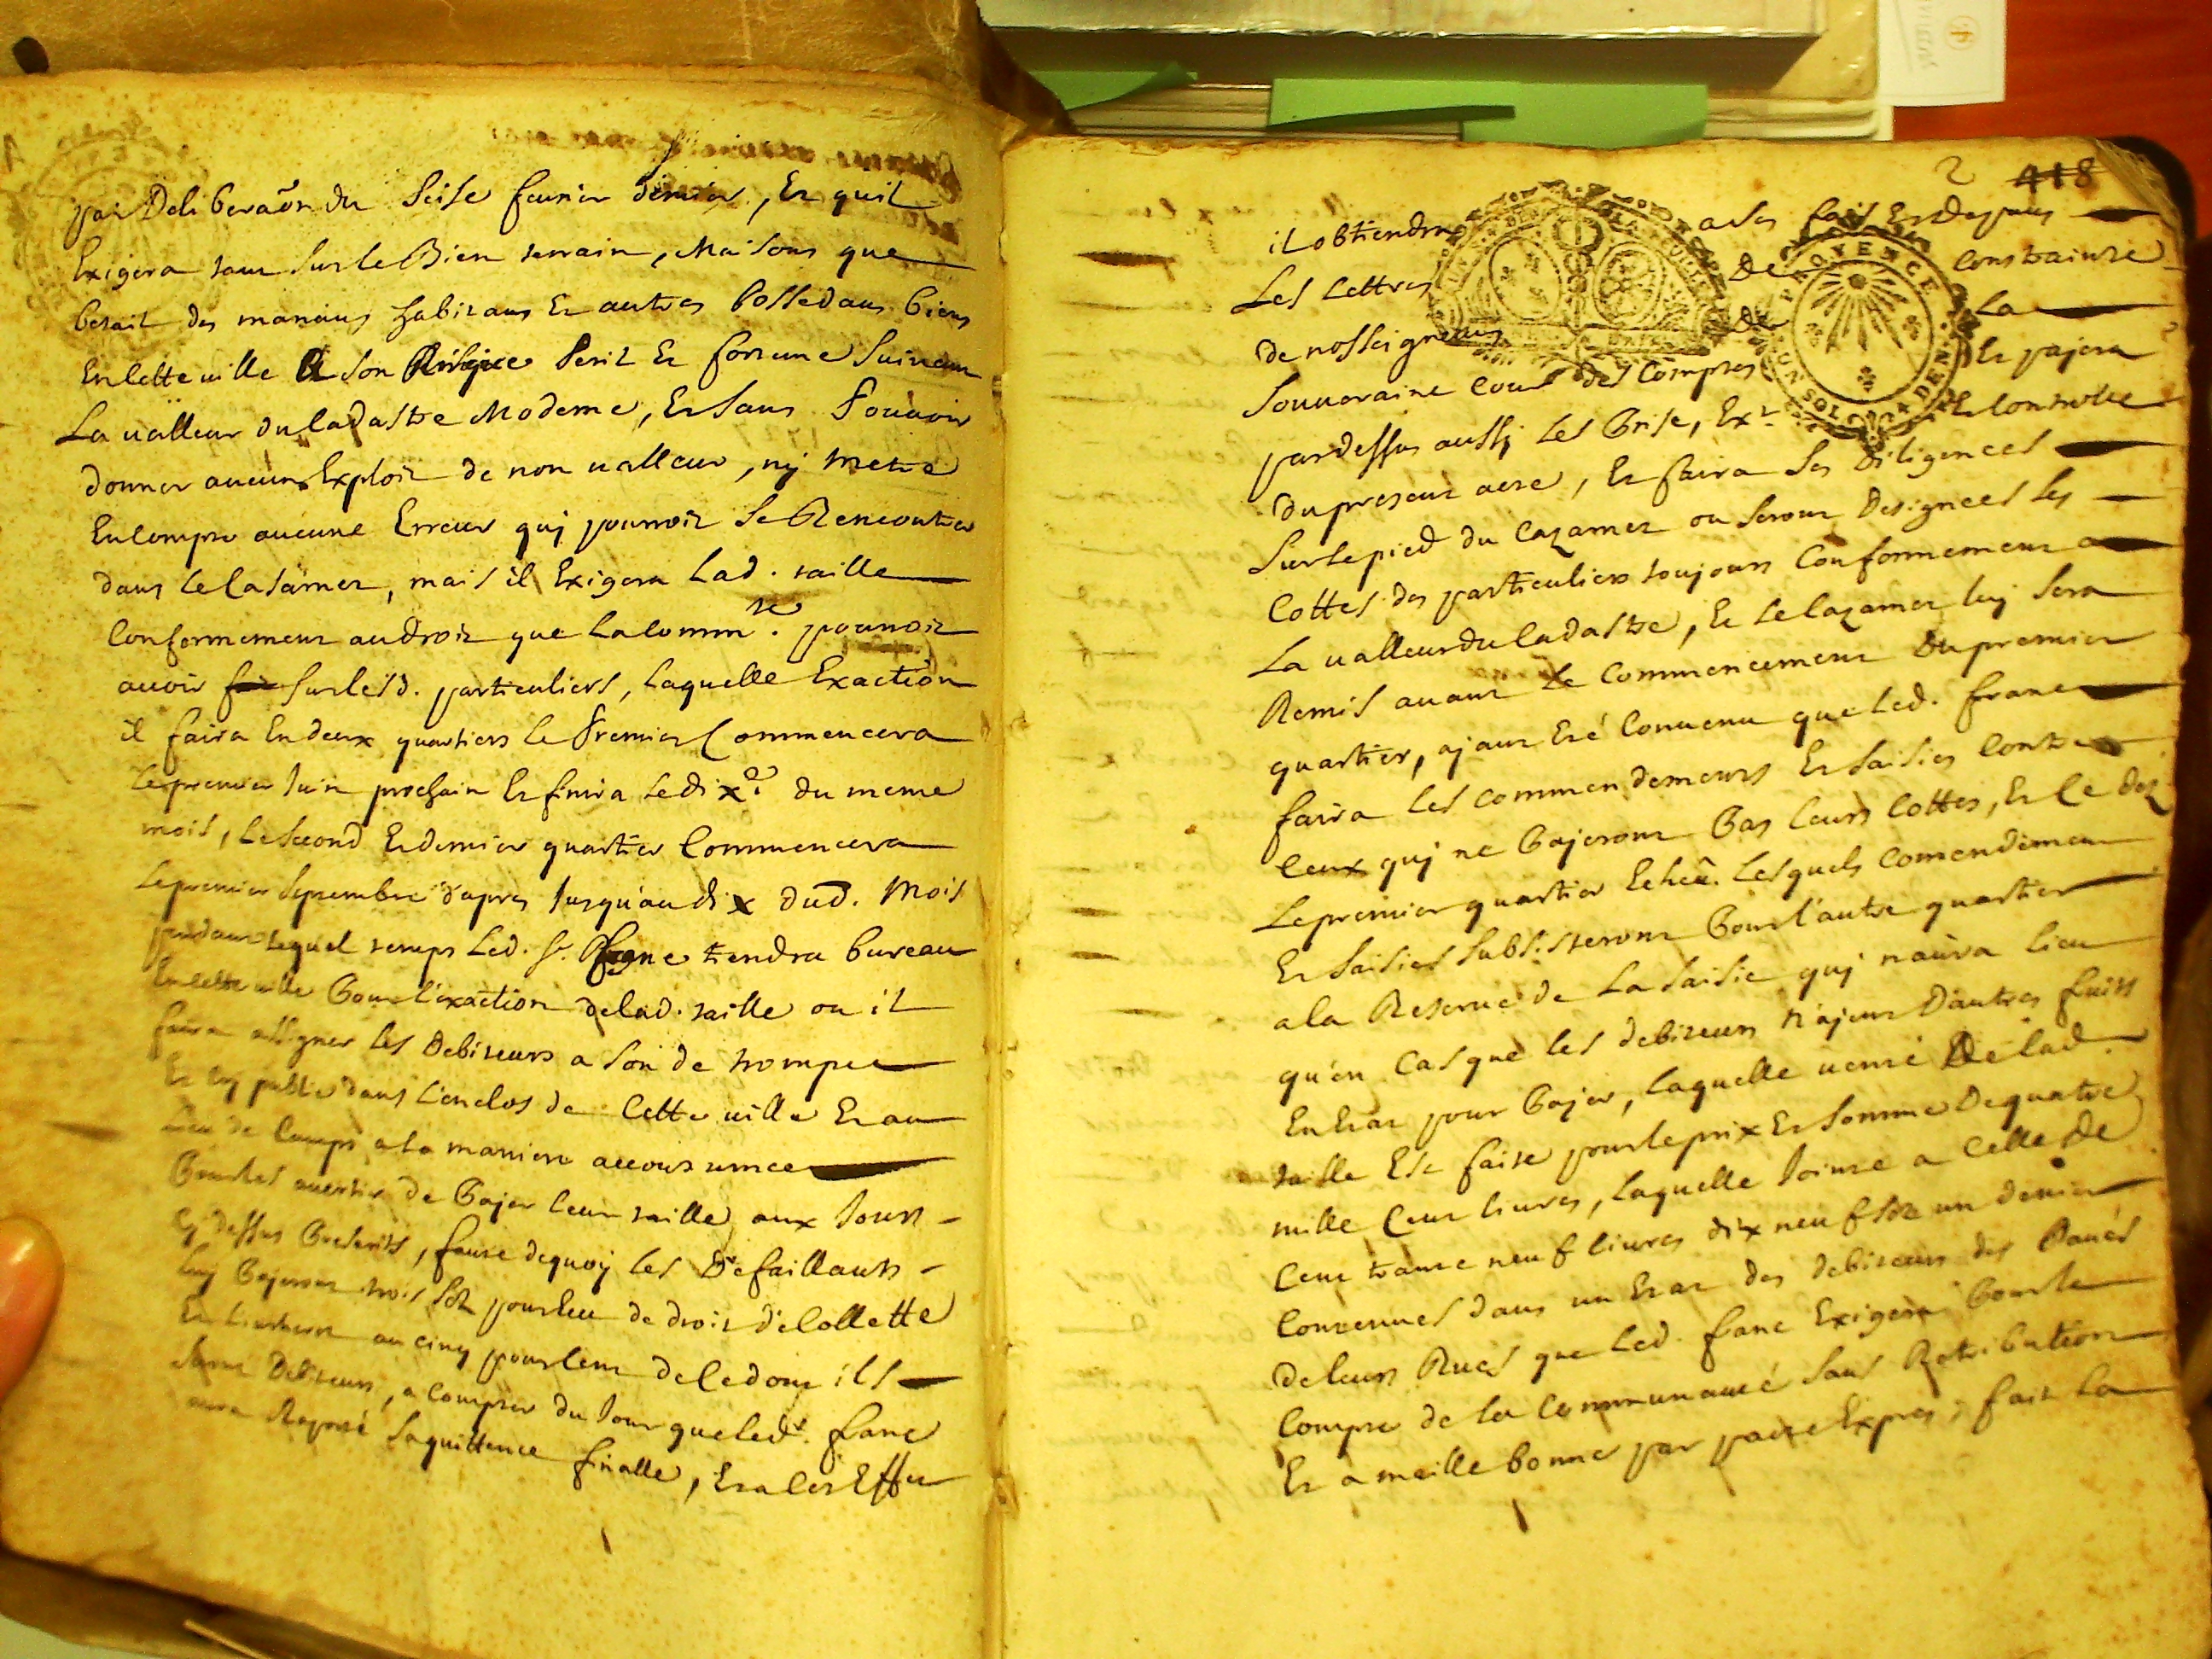 par Deliberaôn du seise feurier dernier, Et quil
Exigera tant sur le Bien terrain, Maisons que
betail des manans habitans Et autres possedans biens
En cette uille A son Risque peril Et fortune suivant
La ualleur du Cadastre Moderne, Et sans pouuoir
donner aucuns Exploit de non ualleur, nÿ metre
En Compte aucune Erreur quÿ pourroit se Rencontrer
dans le Casarnet, mais il Exigera Lad. taille
Conformement au droit que la Comm.te pourroit
auoir sur lesd. particuliers, laquelle Exaction
il faira En deux quartiers le Premier Commencera
le premier Juin prochain Et finira le dix.e du meme
mois, le second Et dernier quartier Commencera
le premier septembre d'apres Jusqu'au dix dud. Mois
pendant lequel temps Led. sr. fanc tendra bureau
En cette uille Pour l'exaction de lad. taille ou il
faira assigner les Debiteurs a son de trompe
Et crÿ public dans l'enclos de Cette uille Et au
Lieu de Camps a la maniere accoustumee
Pour les auertir de Pajer leur taille aux Jours
cÿ dessus Prescrits, faute dequoÿ les Defaillants
luÿ Pajeront trois sols pour Ecu de droit de Collette
Et L'interest au cinq pour Cent de ce dont ils
seront Debiteurs, a Compter du Jour que led. fanc
aura Raporté sa quittence finalle, Et a cet Effet
2 418
il obtiendra a ses frais Et Depans
Les Lettres De Constrainte
de nosseigneurs De La
Souueraine Cour des Comptes Et pajera
pardessus aussÿ Les Prise, Ext. Et Controlle
du present acte, Et faira ses Diligences
sur le pied du Cazarnet ou seront Designees les
Cottes des particuliers toujours Conformement a
La ualleur du Cadastre, Et le Cazarnet luÿ sera
Remis auant le Commencement Du premier
quartier, ajant Eté Conuenu que Led. franc
faira les Commendements Et saisies Contre
Ceux quÿ ne Pajeront Pas leurs Cottes, Et Ce dez
Le premier quartier Echeû. Lesquels Comendement
Et saisies subsisteront Pour l'autre quartier
a la Reserue de La saisie quÿ n'aura lieu
qu'en Cas que les debiteurs n'ajent D'autres fruits
En Etat pour Pajer, laquelle uente De lad.
taille Est faite pour le prix Et somme De quatre
mille Cent liures, laquelle Jointe a Celle de
Cent trante neuf liures dix neuf sols un denier
Contenues dans un Etat des debiteurs des Paués
de leurs Rues que Led. fanc Exigera Pour le
Compte de la Communauté sans Retribution
Et a meille bonne par pacte Expres, fait la
PROVENCE